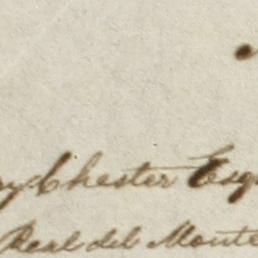 y Chester Esq
Real del Monte